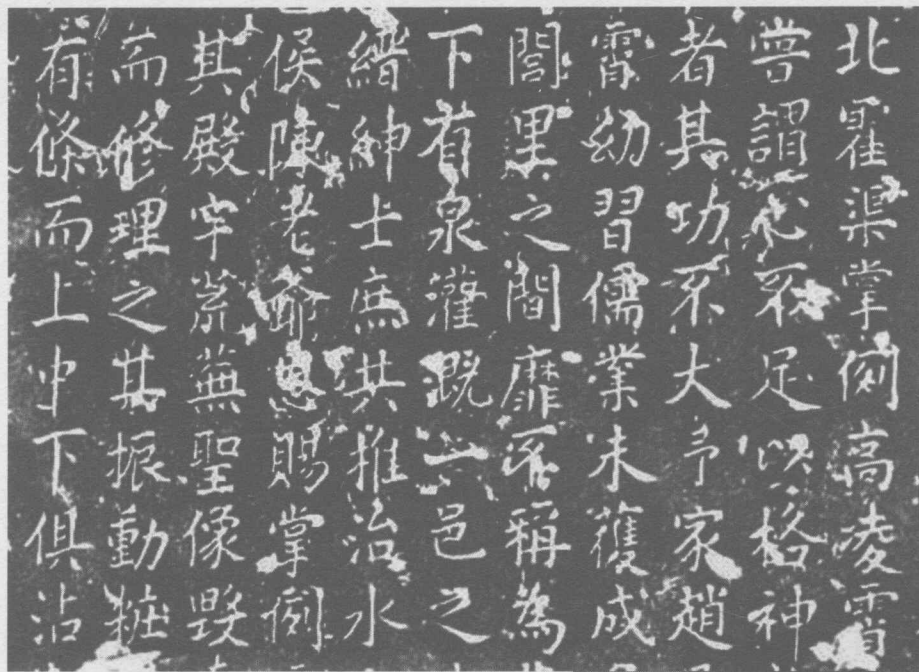 北霍渠掌例高凌霄
嘗謂不足以格神
者其功不大予家趙
霄幼習儒業未獲成
閭里之間靡不稱為
下有泉灌溉一邑之
縉紳士庶共推治水
侯陳老爺恩賜掌例
其殿宇荒蕪聖像毀
而修理之其振動粧
有條而上中下俱沾